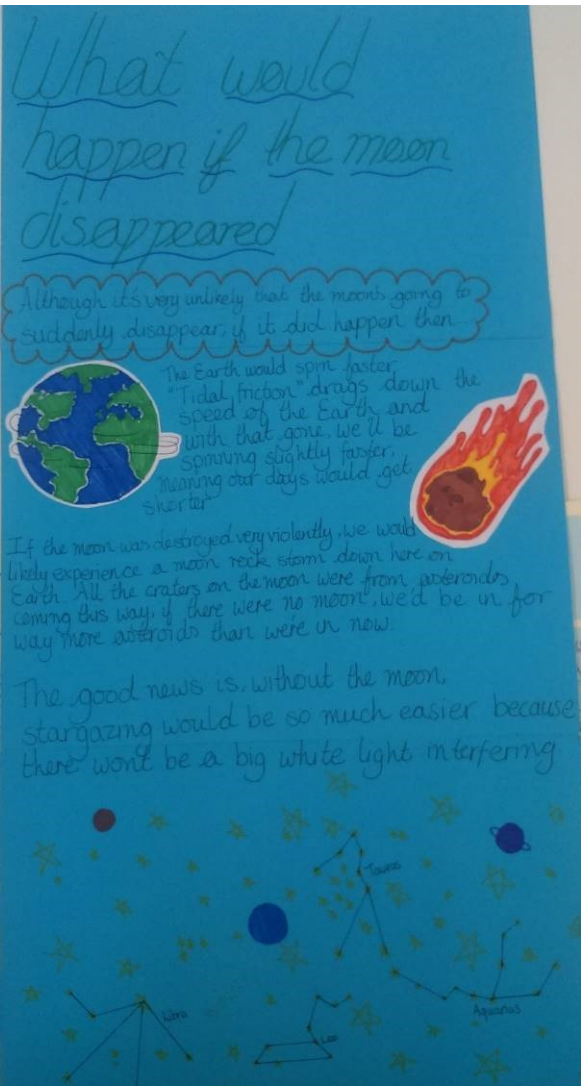 What would
happen if the moon
disappeared
Although it's very unlikely that the moon's going to
suddenly disappear, if it did happen then...
The Earth would spin faster.
"Tidal friction" drags down the
speed of the Earth and
with that gone, we'll be
spinning slightly faster,
meaning our days would get
shorter
If the moon was destroyed very violently, we would
likely experience a moon rock storm down here on
Earth. All the craters on the moon were from asteroids
coming this way, if there were no moon, we'd be in for
way more asteroids than we're in now.
The good news is, without the moon,
stargazing would be so much easier because
there won't be a big white light interfering
Taurus
Libra
Leo
Aquarius